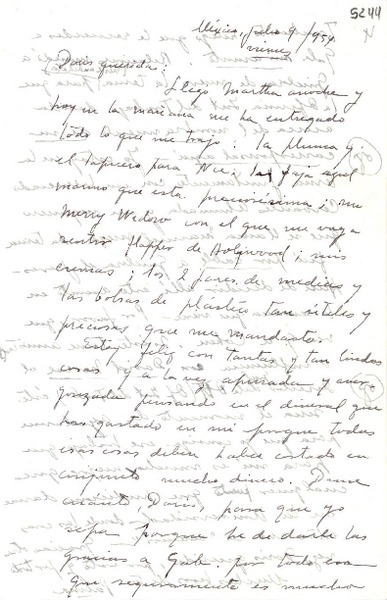 5244
México, Julio 9/1954.
viernes
Doris querida:
Llegó Martha anoche y
hoy en la mañana me ha entregado
todo lo que me trajo: la pluma y
el lapicero para la faja azul
marino que está preciosísima; mi
Merry Widow con el que me voy a
sentir flapper de Hollywood; mis
cremas; los 2 pares de medias y
las bolsas de plástico tan útiles y
preciosas que me mandaste.
Estoy feliz con tantas y tan lindas
cosas y a la vez apurada y aver-
gonzada pensando en el dineral que
has gastado en mí porque todas
esas cosas deben haber costado en
conjunto mucho dinero. Dime
cuánto, Doris, para que yo
sepa porque he de darle las
gracias a Gab. por todo eso
que seguramente es mucho